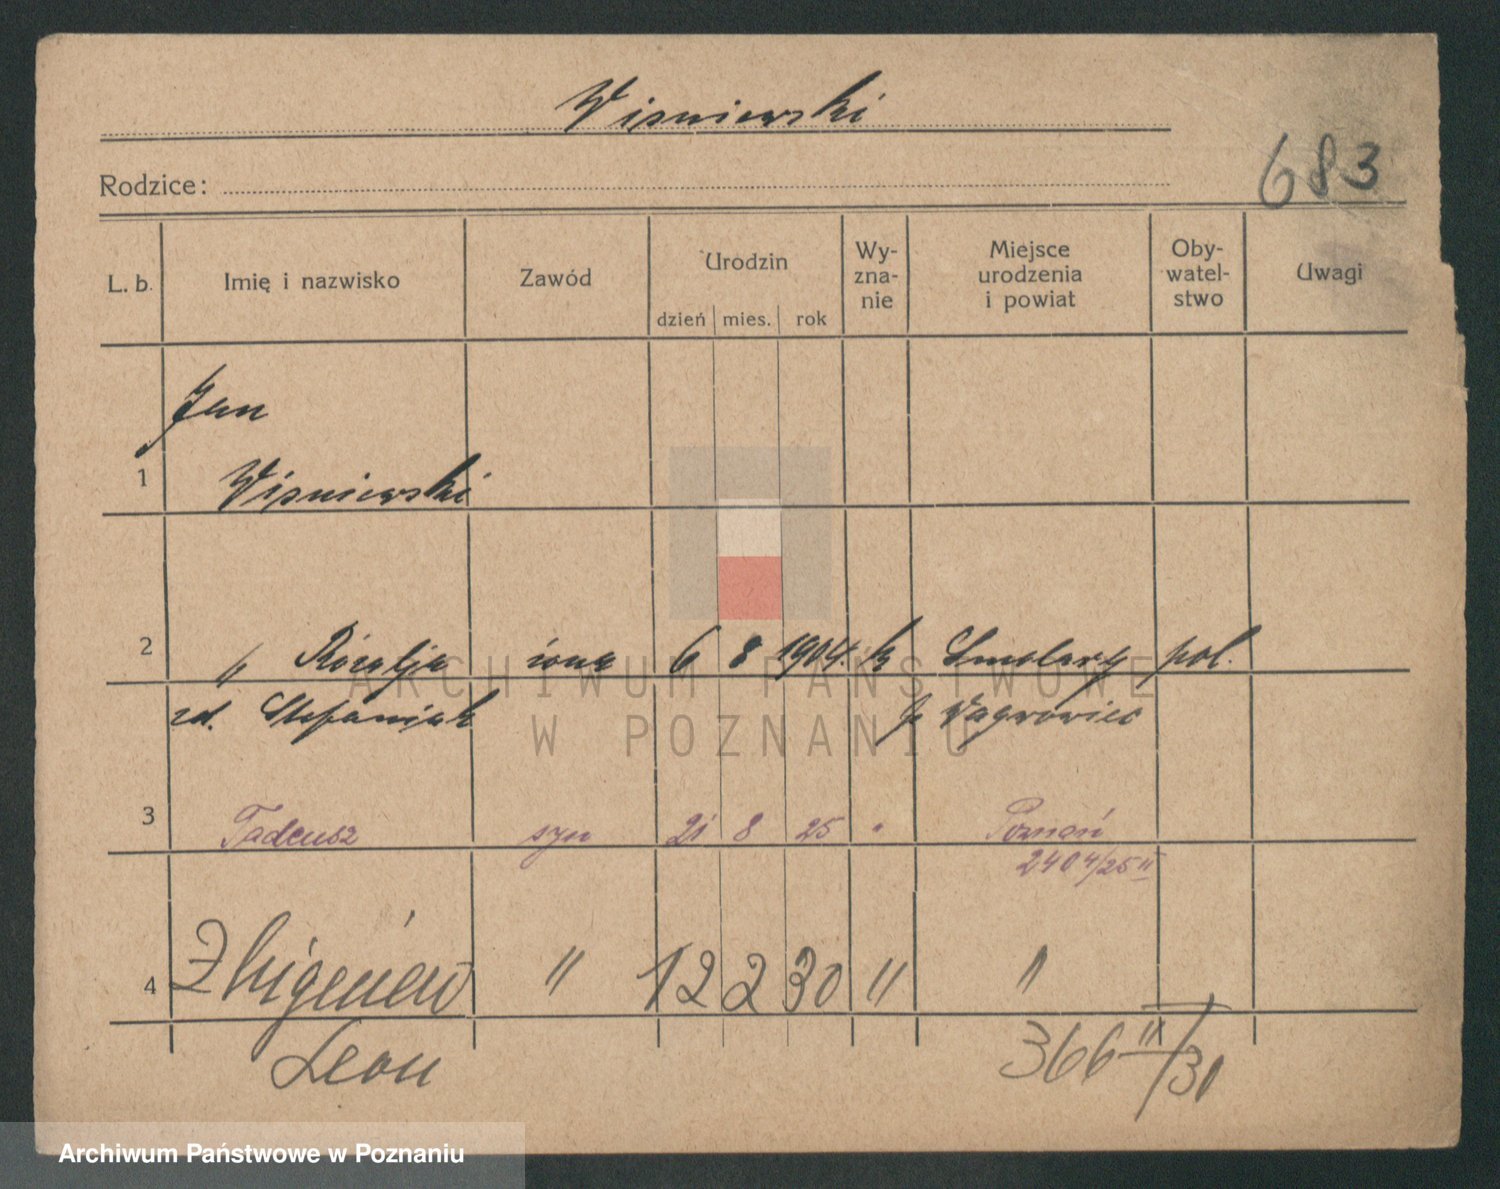 Wisniewski
683
Rodzice:
L. b. Imię i nazwisko Zawód Urodzin Wy-zna-nie Miejsce urodzenia i powiat Oby-watel-stwo Uwagi
dzień mies. rok
Jan
1 Wisniewski
2 " Rozalja żona 6 8 1904. k Smolary pol.
zd. Stefaniak p. Wagrowiec
3 Tadeusz syn 21 8 25 " Poznań
2404/25 II
4 Zbigeniew " 12 2 30 " "
Leon 366 II/30
ARCHIWUM PAŃSTWOWE
W POZNANIU
Archiwum Państwowe w Poznaniu